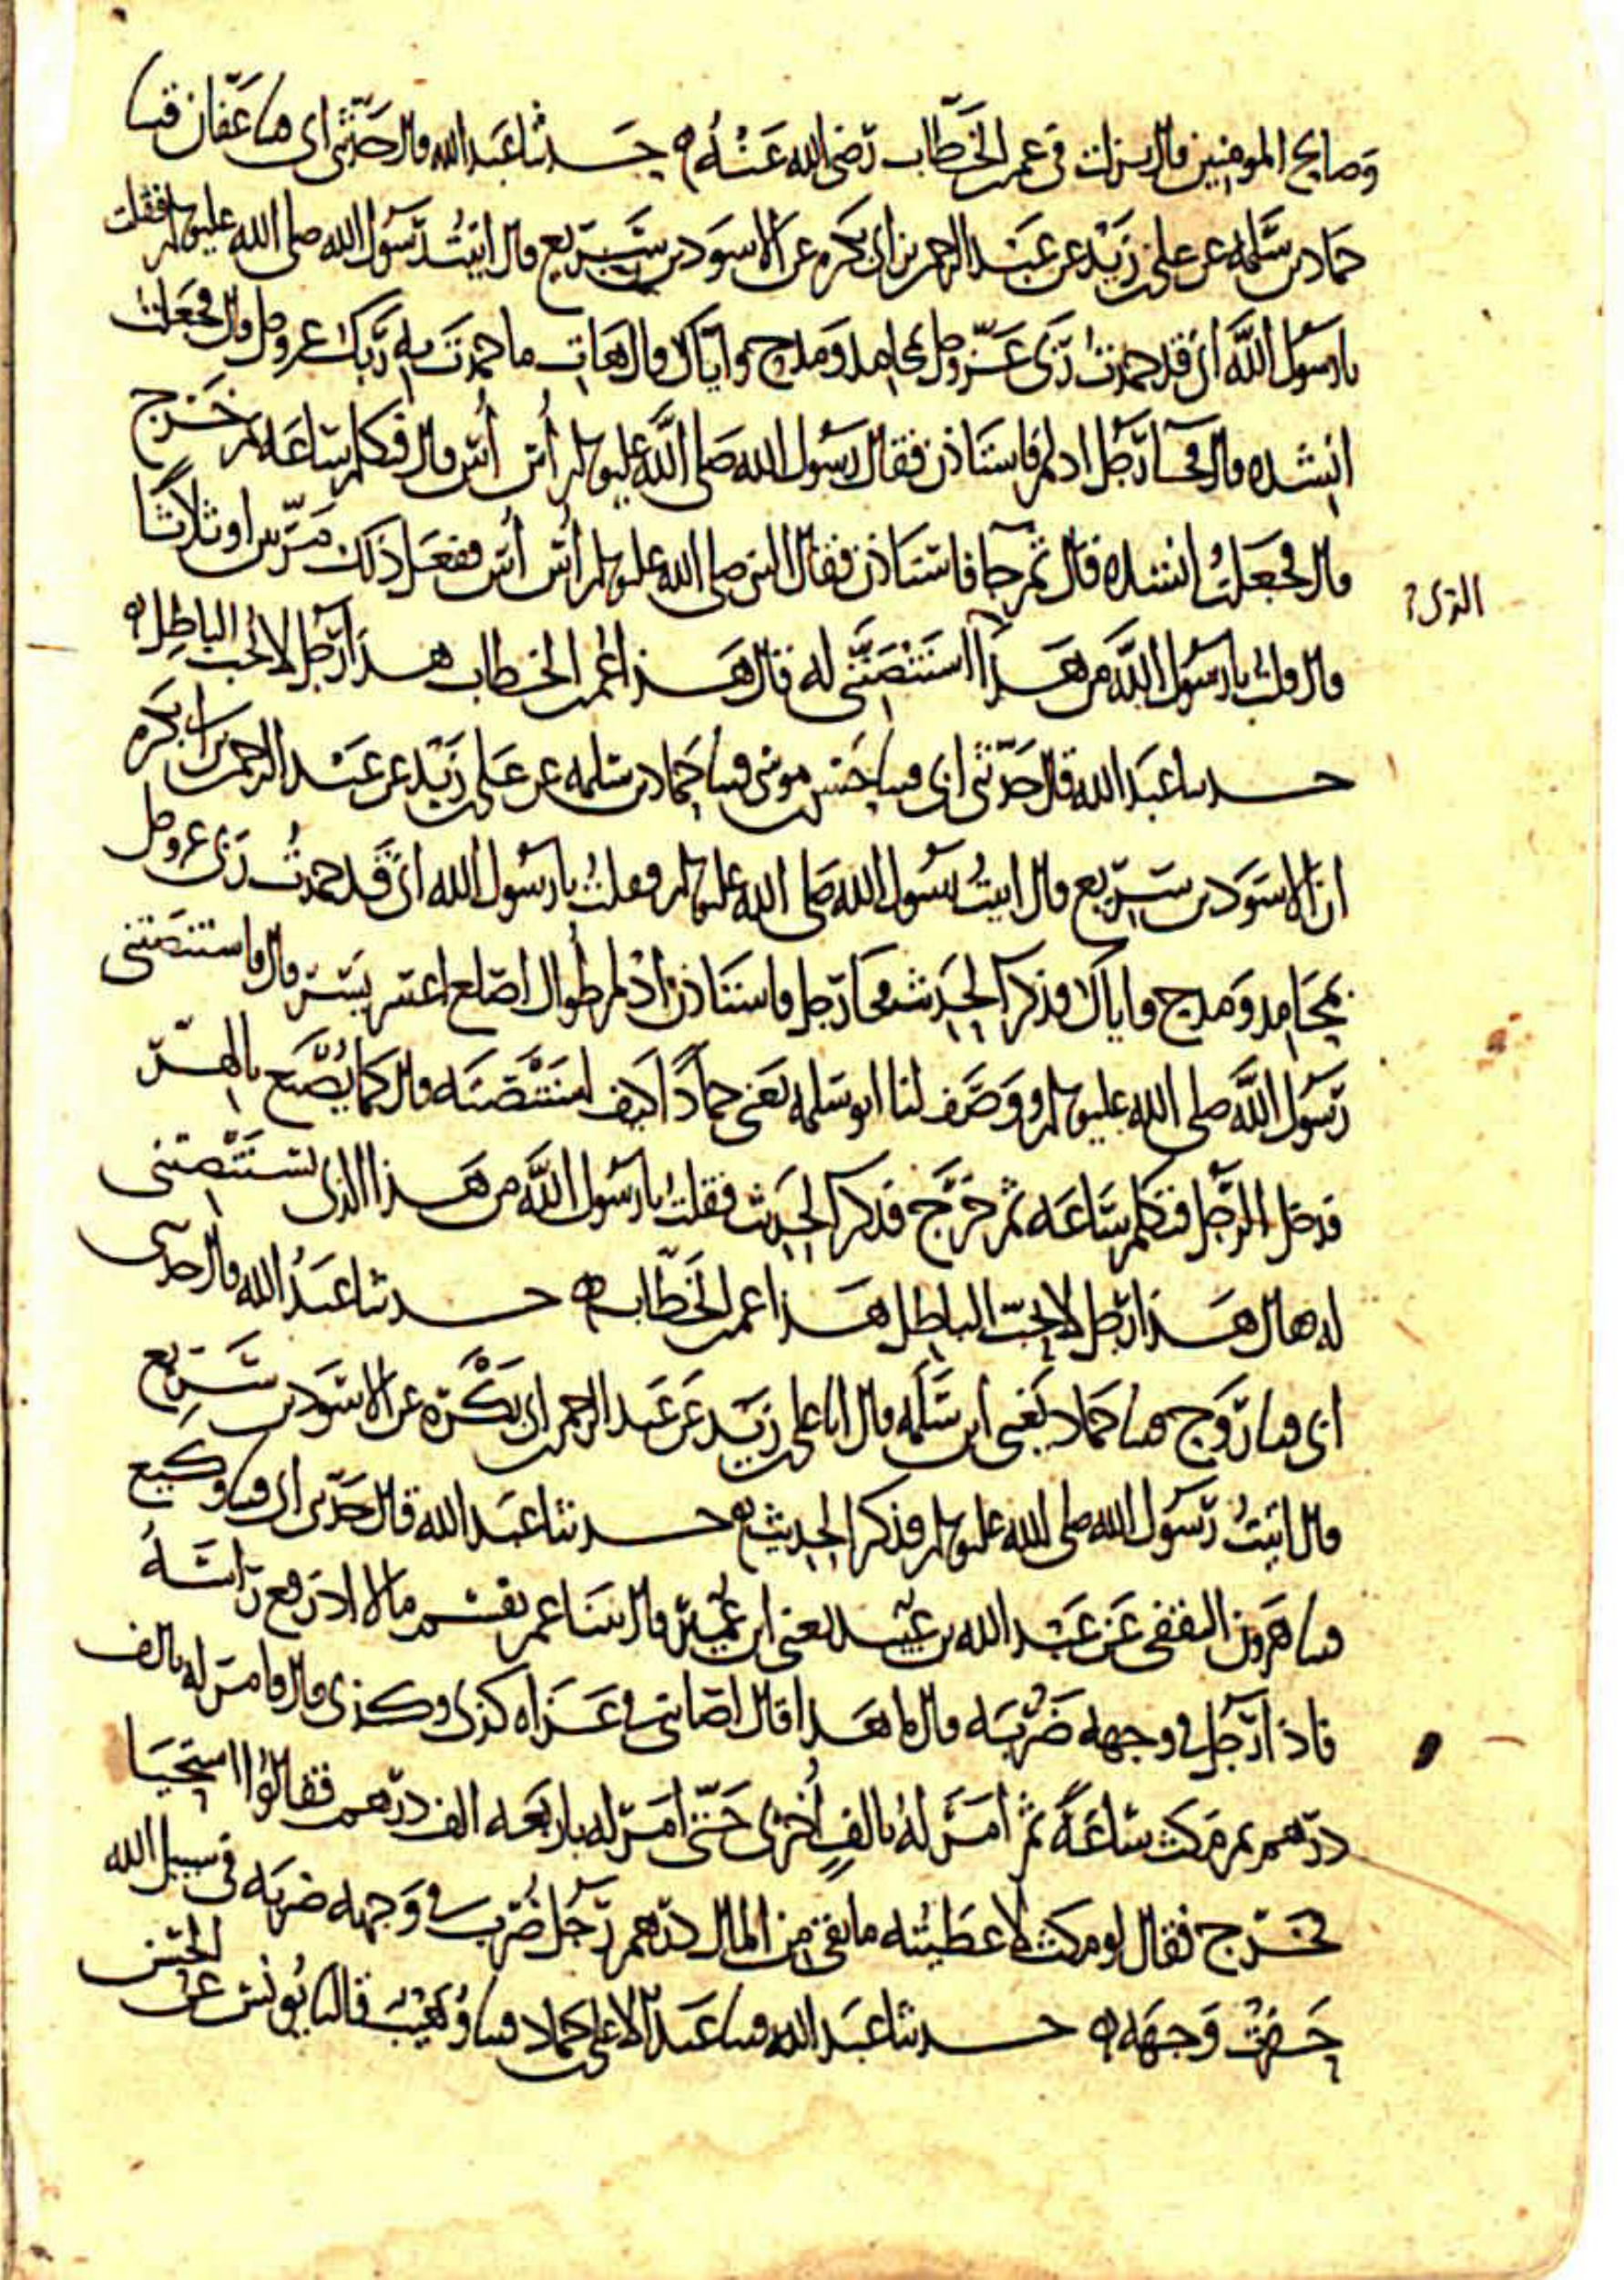 وصالح المومنين قال نزلت في عمر بن الخطاب رضي الله عنه ه حدثنا عبد الله قال حدثني ابي قثنا عفان قثنا
حماد بن سلمه عن علي بن زيد عن عبد الرحمن بن ابي بكره عن الاسود بن سريع قال اتيت رسول الله صلى الله عليه وسلم فقلت
يا رسول الله اني قد حمدت ربي عز وجل بمحامد ومدح واياك قال هات ما حمدت به ربك عز وجل قال فجعلت
انشده قال فجا رجل ادلم فاستاذن فقال رسول الله صلى الله عليه وسلم أس أس قال فتكلم ساعه ثم خرج
قال فجعلت انشده قال ثم جا فاستاذن فقال النبي صلى الله عليه وسلم أس أس ففعل ذلك مرتين او ثلاثا
الذي
قال قلت يا رسول الله من هذا استنصتني له قال هذا عمر بن الخطاب هذا رجل لا يحب الباطل ه
حدثنا عبد الله قال حدثني ابي قثنا حسن بن موسى قثنا حماد بن سلمه عن علي بن زيد عن عبد الرحمن بن ابي بكره
ان الاسود بن سريع قال اتيت رسول الله صلى الله عليه وسلم فقلت يا رسول الله اني قد حمدت ربي عز وجل
بمحامد ومدح واياك فذكر الحديث فجا رجل فاستاذن ادلم طوال اصلع اعسر يسر قال فاستنصتني
رسول الله صلى الله عليه وسلم ووصف لنا ابو سلمه يعني حمادا كيف استنصته قال كما يصنع بالهر
فدخل الرجل فتكلم ساعه ثم خرج فذكر الحديث فقلت يا رسول الله من هذا الذي تستنصتني
له قال هذا رجل لا يحب الباطل هذا عمر بن الخطاب ه حدثنا عبد الله قال حدثني
ابي قثنا روح قثنا حماد يعني ابن سلمه قال انا علي بن زيد عن عبد الرحمن بن ابي بكره عن الاسود بن سريع
قال اتيت رسول الله صلى الله عليه وسلم فذكر الحديث ه حدثنا عبد الله قال حدثني ابي قثنا وكيع
قثنا هرون الثقفي عن عبد الله بن عبيد يعني ابن عمير قال بينا عمر يقسم مالا اذ رفع راسه
فاذا رجل في وجهه ضربه قال ما هذا قال اصابتني في غزاه كذى وكذى قال فامر له بالف
درهم ثم مكث ساعة ثم امر له بالف أخرى حتى امر له باربعه الف درهم فقالوا استحيا
فخرج فقال لو مكث لاعطيته ما بقي من المال درهم رجل ضرب في وجهه ضربه في سبيل الله
حفرت وجهه ه حدثنا عبد الله قثنا عبد الاعلى بن حماد قثنا وهيب قال نا يونس عن الحسن